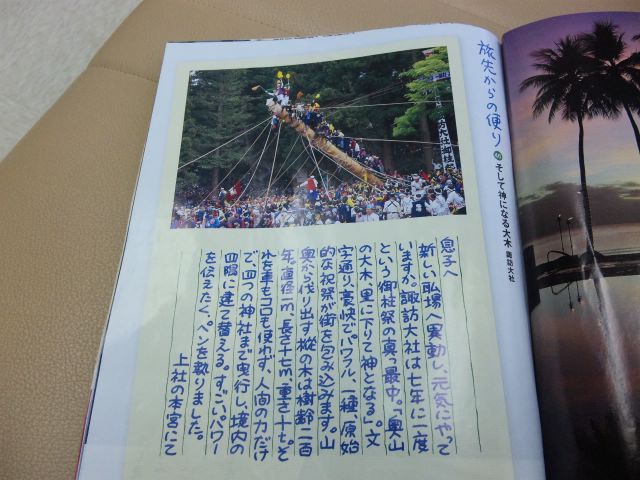 旅先からの便り
そして神になる大木 諏訪大社
息子へ
新しい職場へ異動し、元気にやって
いますか。諏訪大社は七年に一度
という御柱祭の真っ最中。「奥山
の大木、里に下りて神となる」。文
字通り、豪快でパワフル、一種、原始
的な祝祭が街を包み込みます。山
奥から伐り出す樅の木は樹齢二百
年。直径一m、長さ十七m、重さ十t。そ
れを車もコロも使わず、人間の力だけ
で四つの神社まで曳行し、境内の
四隅に建て替える。すごいパワー
を伝えたく、ペンを執りました。
上社の本宮にて